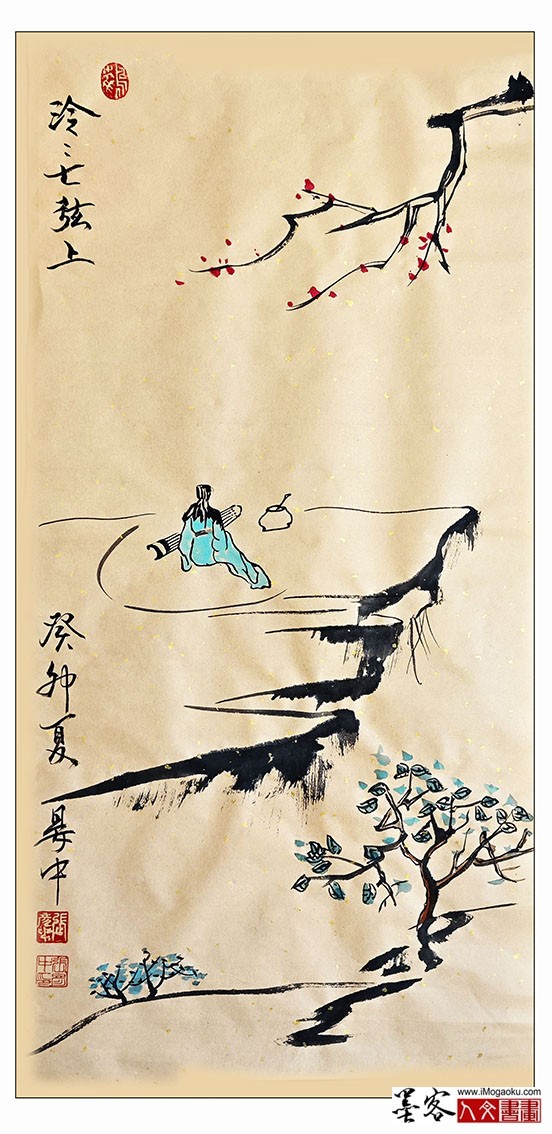 泠〻七弦上
癸卯夏 晏中
墨客 www.iMogaoku.com
人文書畫